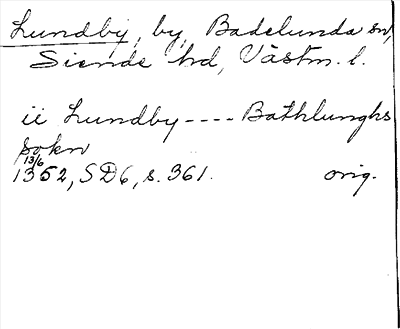 Lundby, by, Badelunda sn,
Siende hd, Västm. l.
ii Lundby ---- Bathlunghs
sokn
13/6
1352, SD6, s. 361. orig.